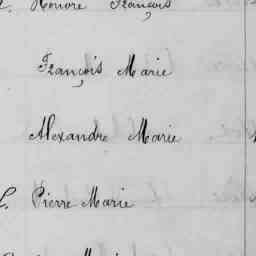 Honoré François
François Marie
Alexandre Marie
L. Pierre Marie